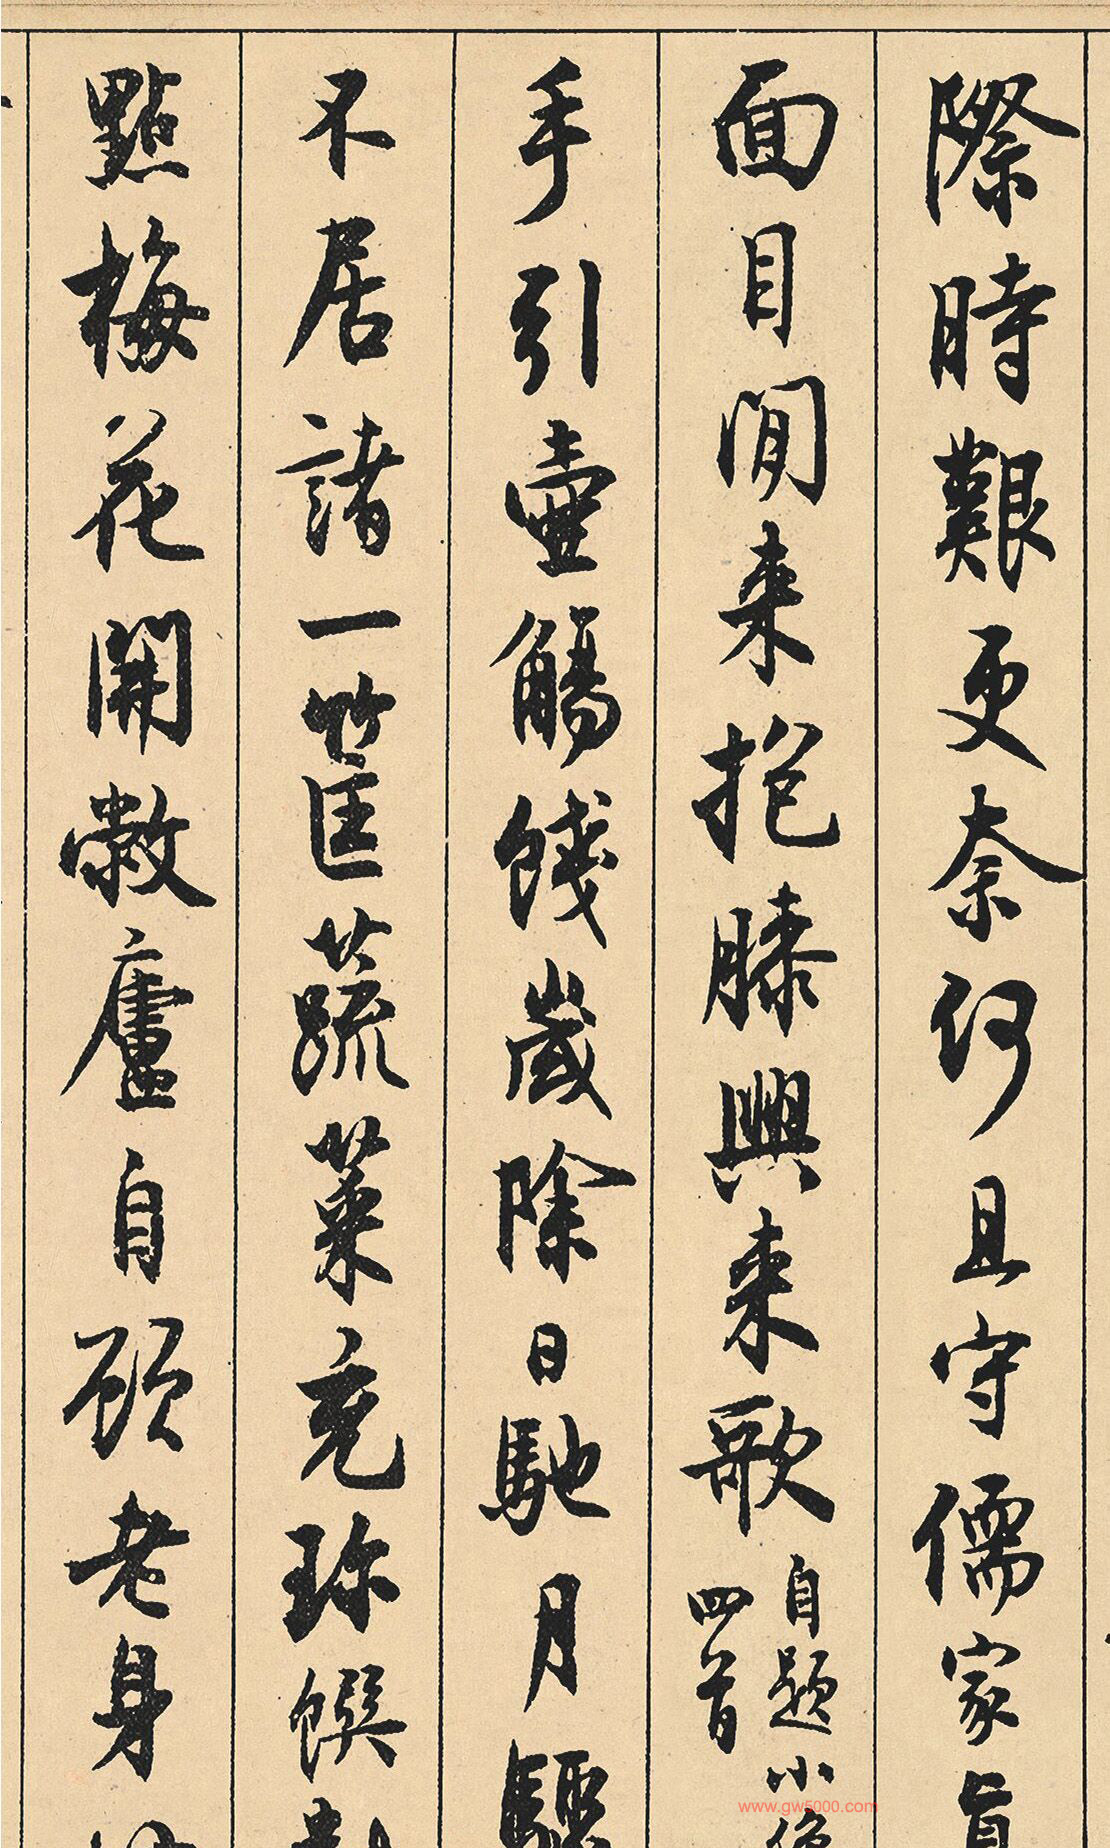 際時艱更奈何且守儒家真
面目閒来抱膝興来歌
自題小像
四首
手引壺觴餞歲除日馳月驟
不居諸一筐蔬菜充珍饌
點梅花開敝廬自顧老身
www.gw5000.com